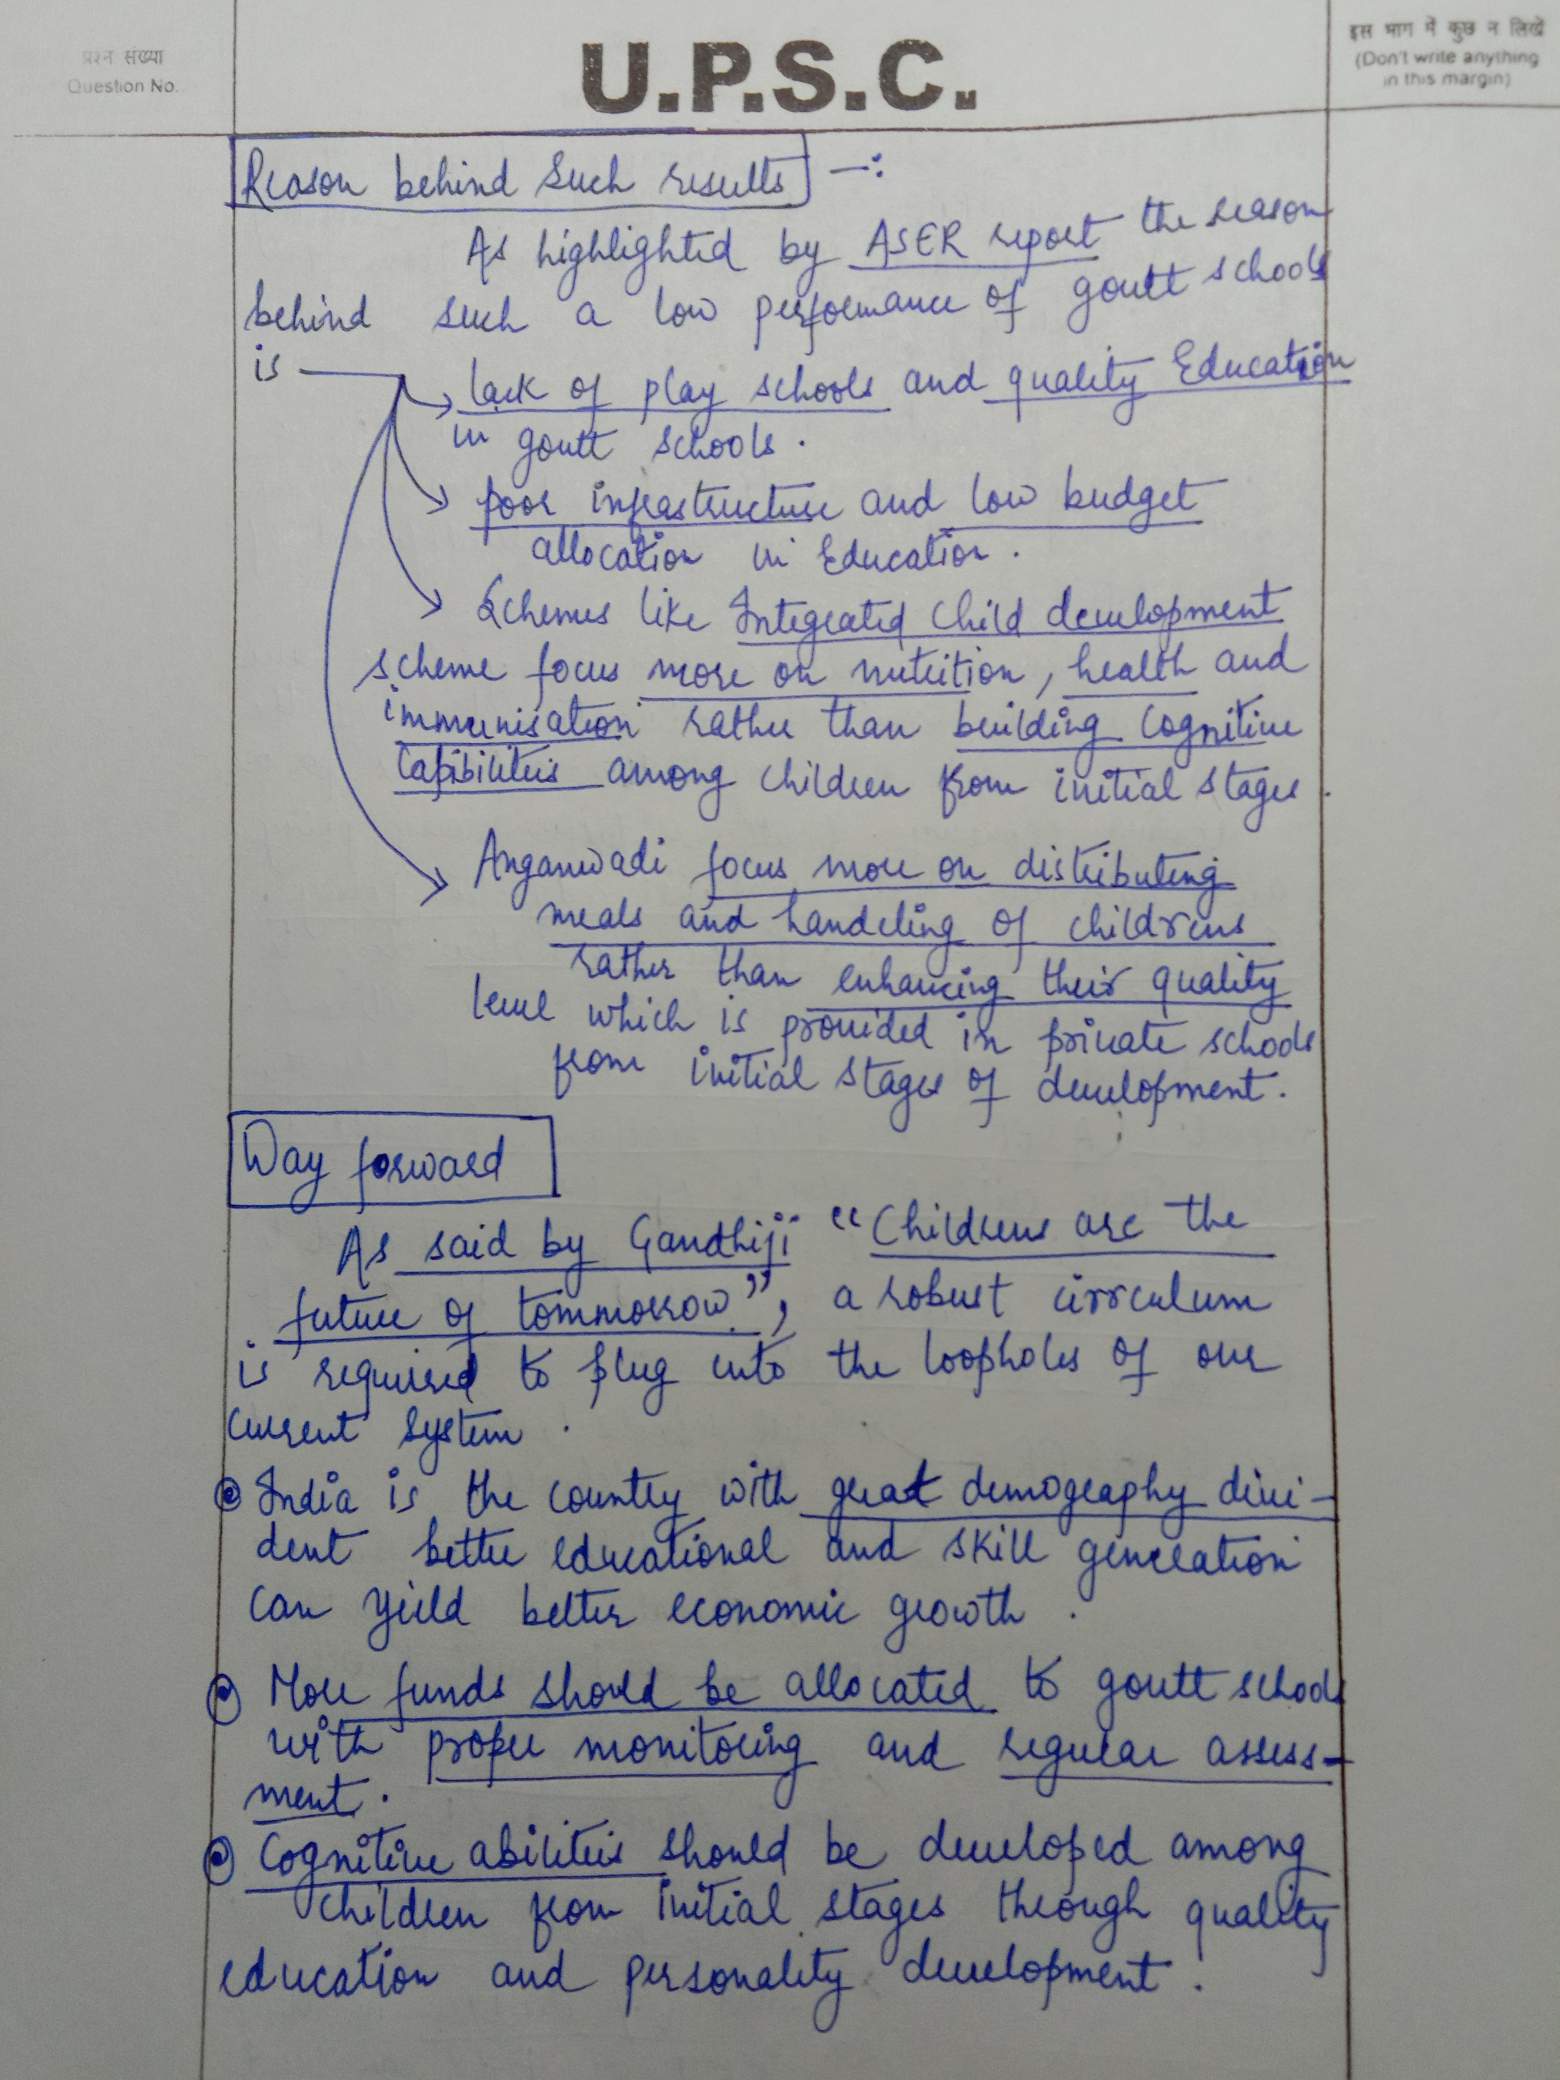 प्रश्न संख्या
Question No.
U.P.S.C.
इस भाग में कुछ न लिखें
(Don't write anything
in this margin)
Reason behind Such results —:
As highlighted by ASER report the reason
behind such a low performance of goutt schools
is
lack of play schools and quality Education
in goutt schools.
poor infrastructure and low budget
allocation in Education.
Schemes like Integrated Child development
scheme focus more on nutrition, health and
immunisation rather than building Cognitive
Capibilities among children from initial stages.
Anganwadi focus more on distributing
meals and handeling of childrens
rather than enhancing their quality
level which is provided in private schools
from initial stages of development.
Way forward
As said by Gandhiji "Childrens are the
future of tommorow", a robust cirrculum
is required to plug into the loopholes of our
current system.
India is the country with great demography divi-
dent better educational and skill generation
can yield better economic growth.
More funds should be allocated to goutt schools
with proper monitoring and regular assess-
ment.
Cognitive abilities should be developed among
children from initial stages through quality
education and personality development.